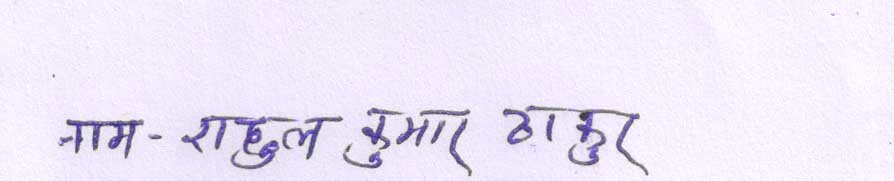 नाम - राहुल कुमार ठाकुर